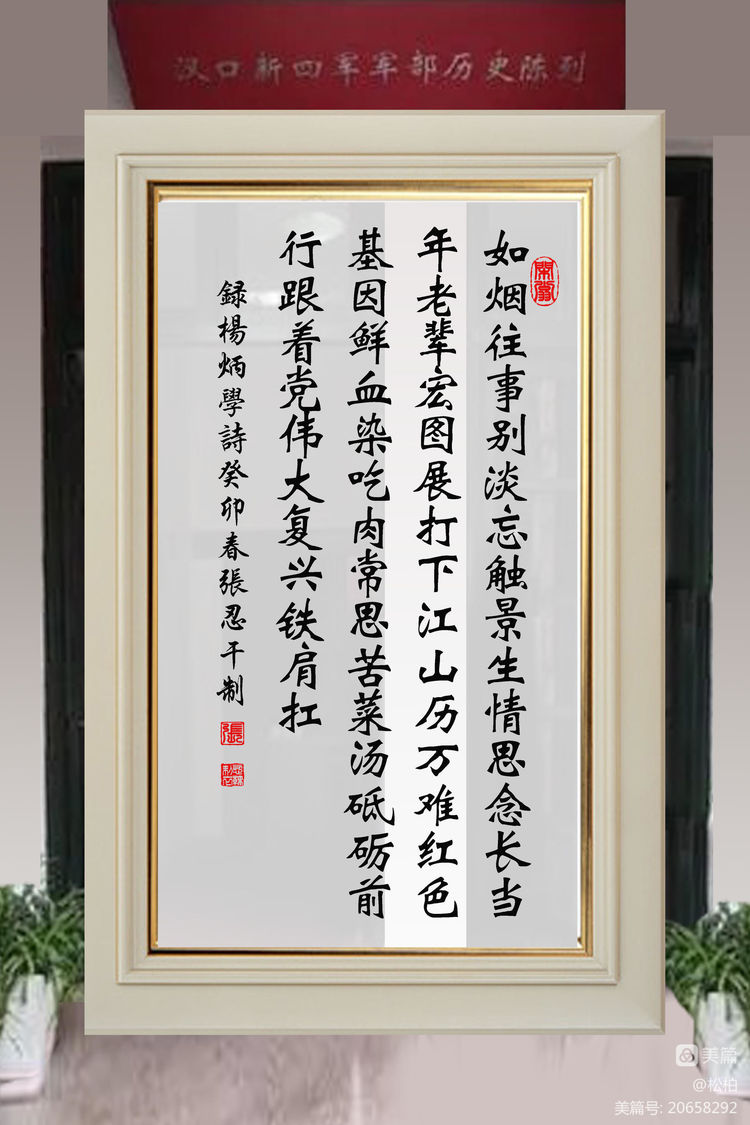 汉口新四军军部历史陈列
如烟往事别淡忘触景生情思念长当
年老辈宏图展打下江山历万难红色
基因鲜血染吃肉常思苦菜汤砥砺前
行跟着党伟大复兴铁肩扛
録楊炳學詩癸卯春張忍干制
張
美篇
@松柏
美篇号: 20658292